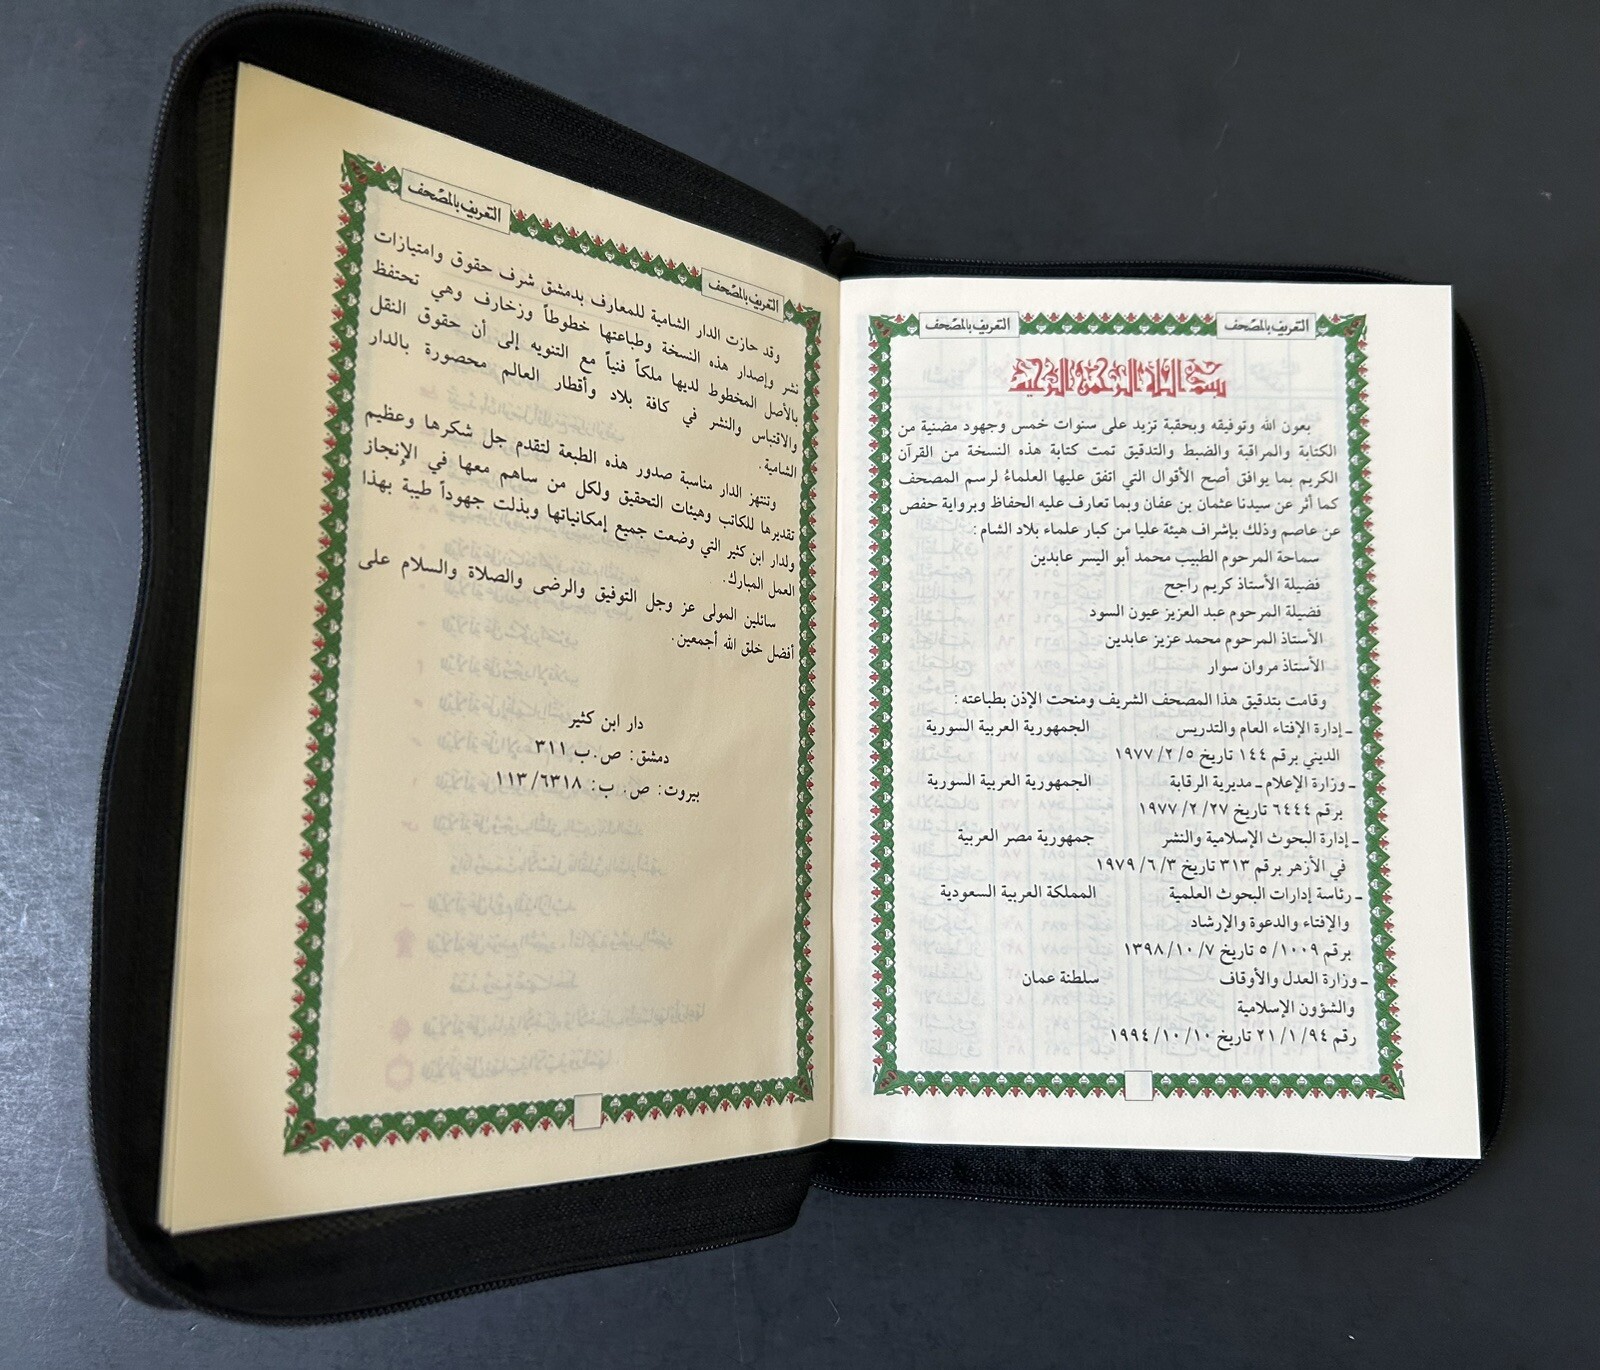 التعريف بالمصحف
التعريف بالمصحف
بسم الله الرحمن الرحيم
بعون الله وتوفيقه وبحقبة تزيد على سنوات خمس وجهود مضنية من
الكتابة والمراقبة والضبط والتدقيق تمت كتابة هذه النسخة من القرآن
الكريم بما يوافق أصح الأقوال التي اتفق عليها العلماءُ لرسم المصحف
كما أثر عن سيدنا عثمان بن عفان وبما تعارف عليه الحفاظ وبرواية حفص
عن عاصم وذلك بإشراف هيئة عليا من كبار علماء بلاد الشام :
سماحة المرحوم الطبيب محمد أبو اليسر عابدين
فضيلة الأستاذ كريم راجح
فضيلة المرحوم عبد العزيز عيون السود
الأستاذ المرحوم محمد عزيز عابدين
الأستاذ مروان سوار
وقامت بتدقيق هذا المصحف الشريف ومنحت الإذن بطباعته :
ـ إدارة الإفتاء العام والتدريس الجمهورية العربية السورية
الديني برقم ١٤٤ تاريخ ٥/ ٢/ ١٩٧٧
ـ وزارة الإعلام ـ مديرية الرقابة الجمهورية العربية السورية
برقم ٦٤٤٤ تاريخ ٢٧/ ٢/ ١٩٧٧
ـ إدارة البحوث الإسلامية والنشر جمهورية مصر العربية
في الأزهر برقم ٣١٣ تاريخ ٣/ ٦/ ١٩٧٩
ـ رئاسة إدارات البحوث العلمية المملكة العربية السعودية
والإفتاء والدعوة والإرشاد
برقم ١٠٠٩/ ٥ تاريخ ٧/ ١٠/ ١٣٩٨
ـ وزارة العدل والأوقاف سلطنة عمان
والشؤون الإسلامية
رقم ٩٤/ ١/ ٢١ تاريخ ١٠/ ١٠/ ١٩٩٤
التعريف بالمصحف
التعريف بالمصحف
وقد حازت الدار الشامية للمعارف بدمشق شرف حقوق وامتيازات
نشر وإصدار هذه النسخة وطباعتها خطوطاً وزخارف وهي تحتفظ
بالأصل المخطوط لديها ملكاً فنياً مع التنويه إلى أن حقوق النقل
والاقتباس والنشر في كافة بلاد وأقطار العالم محصورة بالدار
الشامية.
وتنتهز الدار مناسبة صدور هذه الطبعة لتقدم جل شكرها وعظيم
تقديرها للكاتب وهيئات التحقيق ولكل من ساهم معها في الإنجاز
ولدار ابن كثير التي وضعت جميع إمكانياتها وبذلت جهوداً طيبة بهذا
العمل المبارك.
سائلين المولى عز وجل التوفيق والرضى والصلاة والسلام على
أفضل خلق الله أجمعين.
دار ابن كثير
دمشق: ص. ب ٣١١
بيروت: ص. ب: ٦٣١٨/ ١١٣